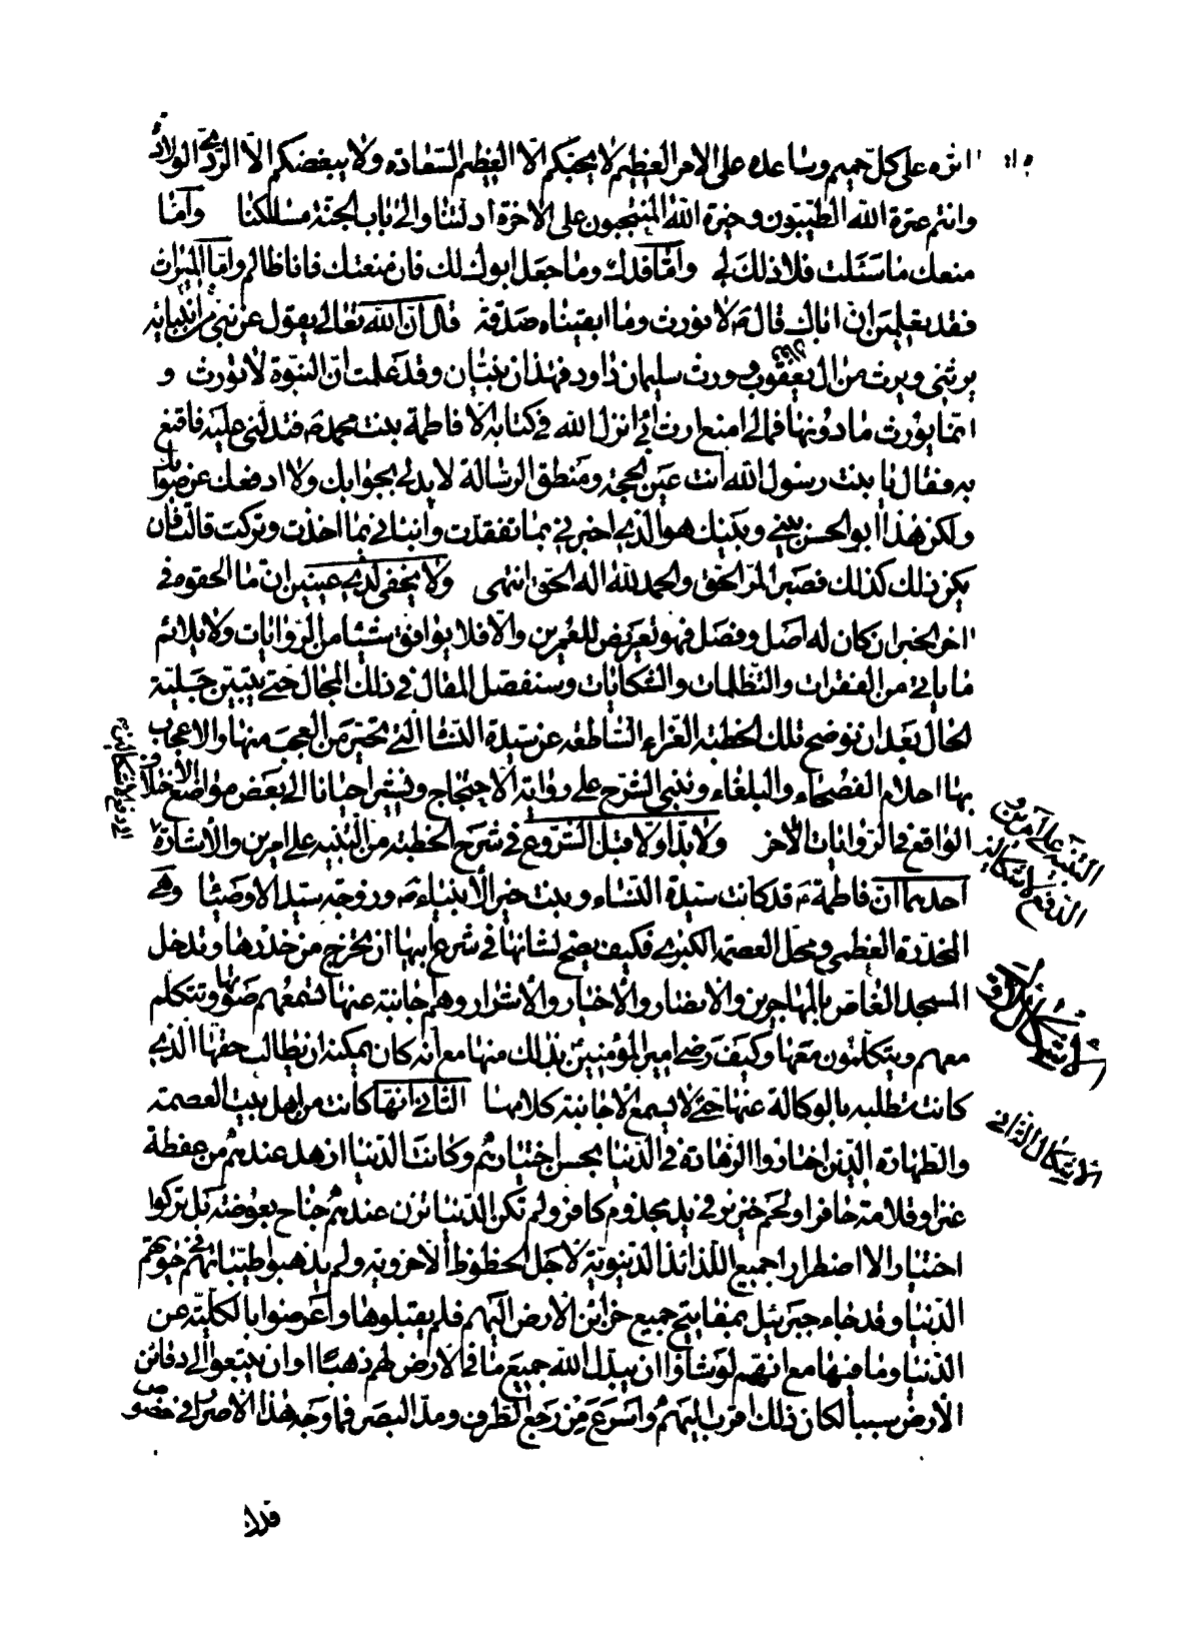 اثره على كلّ حميم وساعده على الامر العظيم لا يحبّكم الّا العظيم السّعادة ولا يبغضكم الّا الرّدىّ الولادة
وانتم عترة الله الطّيّبون وخيرة الله المنتجبون على الاخرة ادلّتنا والى باب الجنّة مسالكنا وامّا
منعك ما سئلت فلا ذلك لي وامّا فدك وما جعل ابوك لك فان منعتك فانا ظالم وامّا الميراث
فقد تعلمين انّ اباك قال ص لا نورث وما ابقيناه صدقة قال انّ الله تعالى يقول عن نبيّ من انبيائه
يرثني ويرث من ال يعقوب وورث سليمان داود فهذان نبيّان وقد علمت انّ النبوّة لا تورث و
انّما يورث ما دونها فمالي امنع ارث ابي انزل الله في كتابه الا فاطمة بنت محمد ص فتدلّني عليه فاقنع
به فقال يا بنت رسول الله انت عين الحجّة ومنطق الرسالة لا يد لي بجوابك ولا ادفعك عن صوابك
ولكن هذا ابو الحسن بيني وبينك هو الذي اخبرني بما تفقدت وانباني بما اخذت وتركت قالت فان
يكن ذلك كذلك فصبرا لمرّ الحق والحمد لله اله الحق انتهى ولا يخفى لذي عينين انّ ما الحقوه في
اخر الخبر ان كان له اصل وفصل فهو تعريض للعمرين والّا فلا يوافق شيئا من الرّوايات ولا يلائم
ما ياتي من الفقرات والتظلمات والشكايات وسنفصل المقال في ذلك المجال حتى يتبيّن جليّة
الحال بعد ان نوضح تلك الخطبة الغراء الساطعه عن سيّدة النساء الّتي تحيّر من العجب منها والاعجاب
بها احلام الفصحاء والبلغاء ونبني الشرح على رواية الاحتجاج ونشير احيانا الى بعض مواضع الاختلاف
الواقع في الرّوايات الاخر ولا بدّ اولا قبل الشروع في شرح الخطبة من التنبيه على امرين والاشارة
التنبيه على امرين و
الدفع لاشكالين
احدهما انّ فاطمة ع قد كانت سيّدة النّساء وبنت خير الانبياء ص وزوجة سيّد الاوصياء وهي
المخدّرة العظمى ومحل العصمة الكبرى فكيف يصحّ لشانها في شرع ابيها ان تخرج من خدرها وتدخل
المسجد الغاصّ بالمهاجرين والانصار والاخيار والاشرار وهم جانبة عنها تسمعهم صوتها وتتكلم
معهم ويتكلمون معها وكيف رضي امير المؤمنين بذلك منها مع انّه كان يمكنه ان يطالب حقها الذي
كانت تطلبه بالوكالة عنها حتى لا يسمع الاجانبة كلامها الثاني انّها كانت من اهل بيت العصمة
الاشكال الثاني
والطهارة الذين اختاروا الزّهادة في الدّنيا بحسن اختيارهم وكانت الدّنيا ازهد عندهم من عفطة
عنز او قلامة حافر او لحم خنزير في يد مجذوم كافر ولم تكن الدّنيا تزن عندهم جناح بعوضة بل تركوا
اختيارا لا اضطرارا جميع اللذائذ الدّنيويّة لاجل الحظوظ الاخرويّة ولم يذهبوا طيّباتهم في حيوتهم
الدّنيا وقد جاء جبرئيل بمفاتيح جميع خزائن الارض اليهم فلم يقبلوها واعرضوا بالكليّة عن
الدّنيا وما فيها مع انّهم لو شاؤا ان يبدّل الله جميع ما في الارض لهم ذهبًا او ان يبتغوا الى دفائن
الارض سببا لكان ذلك اقرب اليهم واسرع من رجع الطّرف ومدّ البصر فما وجه هذا الاصرار في خصوص
فدك